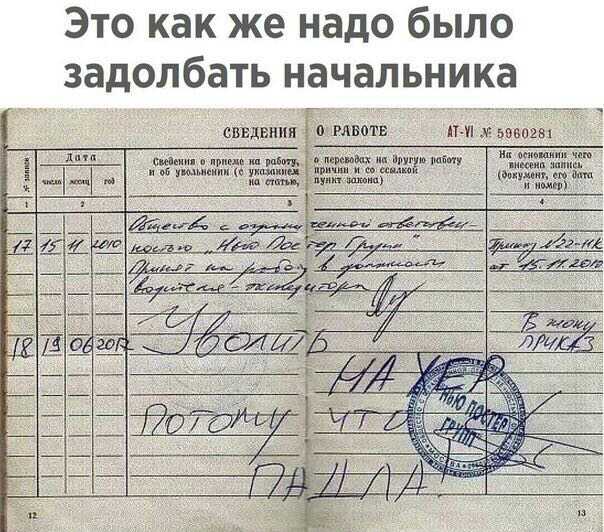 Это как же надо было
задолбать начальника
СВЕДЕНИЯ О РАБОТЕ АТ-VI № 5960281
№ записи
Дата
число месяц год
Сведения о приеме на работу, о переводах на другую работу
и об увольнении (с указанием причин и со ссылкой
на статью, пункт закона)
На основании чего
внесена запись
(документ, его дата
и номер)
1 2 3 4
Общество с ограниченной ответствен-
17 15 11 2010 ностью "Нью Постер Групп" Приказ №22-НК
Принят на работу в должности от 15.11.2010
водителя-экспедитора
В жопу
18 19 06 2012 Уволить ПРИКАЗ
НА ХЕР
Потому что
ПАДЛА!
НЬЮ ПОСТЕР
ГРУПП
МОСКВА
12 13